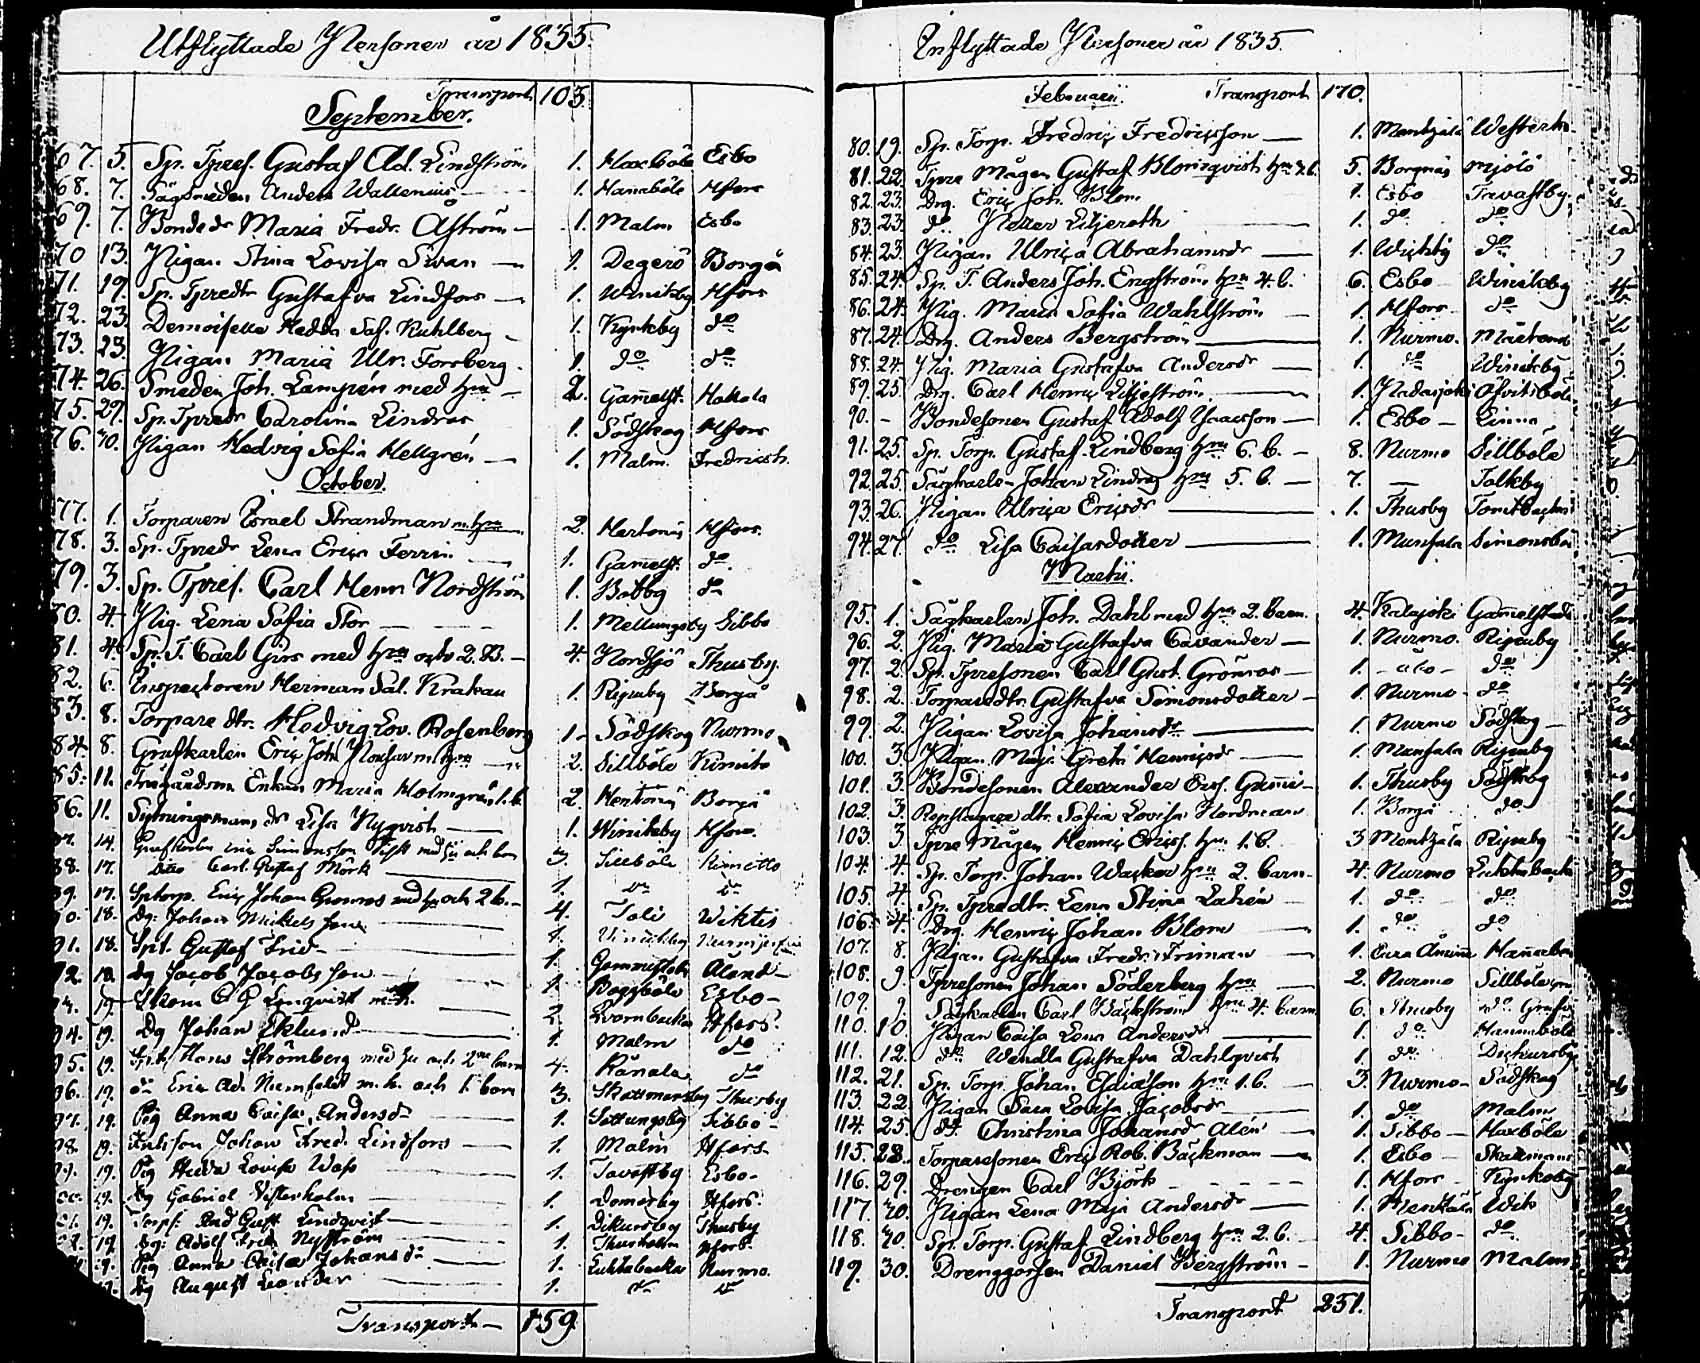 Utflyttade Personer år 1835.
Transport 103.
September.
67. 5. Sp. Tpref. Gustaf Ad. Lindström 1. Maxböle Esbo
68. 7. Anders Wallenius 1. Hanaböle Hfors
69. 7. Bondedr Maria Fredr. Åström 1. Malm Esbo
70 13. Pigan Stina Lovisa Swan 1. Degerö Borgå
71. 19. Sp. Tpredtr Gustafva Lindfors 1. Winikby Hfors
72. 23. Demoiselle Hedda Sof. Kuhlberg 1. Kyrkby do
73. 23. Pigan Maria Ulr. Forsberg 1. do do
74. 26. Smeden Joh. Lampén med hru 2. Gamelst. Hakola
75. 29. Sp. Tpredr Carolina Lindros 1. Sådskog Hfors
76. 30. Pigan Hedvig Sofia Hellgrén 1. Malm Fredrichsh.
October.
77. 1. Torparen Israel Strandman m. hru 2. Hertonäs Hfors.
78. 3. Sp. Tpredr Lena Erica Ferrin 1. Gamelst. do
79. 3. Sp. Tpref. Carl Henr Nordström 1. Bobby do
80. 4. Pig. Lena Sofia Stor 1. Mellungsby Sibbo
81. 4. Sp. T. Carl Girs med hru och 2. B. 4. Nordsjö Thusby
82. 6. Inspectoren Herman Sal. Krakau 1. Ripuby Borgå
83. 8. Torpare dtr. Hedvig Lov. Rosenberg 1. Sådskog Nurmo
84. 8. Grufkarlen Eric Joh m. hru 2. Sillböle Kimito
85. 11. Enkan Maria Holmgrén 1. b. 2. Hertonäs Borgå
86. 11. Sytningsmans dr Lisa Nyqvist 1. Winikby Hfors.
87. 14. Grufkarlen Eric Simonsson med hu och barn 3. Sillböle Kimitto
88. 17. Ditto Carl Gustaf Mörk 1. do do
89. 17. Sptorp. Eric Johan Grönros med hu och 2 b. 4. Tali Wiktis
90. 18. Dg: Johan Mickelsson 1. Winikby Nurmijärvi
91. 18. Gustaf Frid 1. Åland
92. 18. Dg Jacob Jacobsson 1. Boxböle Esbo
93. 19. C G Lenqvist m. h. 2. Qvarnbacka Hfors.
94. 19. Dg Johan Eklund 1. Malm do
95. 19. Hans Strömberg med hu och 2ne barn 4. Rånala do
96. 19. do Eric Ad. m. h. och 1 barn 3. Skattmansby Thusby
97. 19. Pig Anna Caisa Andersdr 1. Sottungsby Sibbo
98. 19. Johan Fred. Lindfors 1. Malm Hfors
99. 19. Pig Hedda Lovisa Wass 1. Tavastby Esbo
19. Dg Gabriel Vesterholm 1. Domarby Hfors.
19. Torpf. And Gust. Lindqvist 1. Dikursby Thusby
19. Dg: Adolf Fred Nyström 1. Thusholm Hfors.
19. Pig Anna Caisa Johansdr 1. Luktabacka Nurmo.
Dg August Leander 1. do do
Transport 159
Inflyttade Personer år 1835.
Februarii. Transport 170.
80. 19. Sp. Torp. Fredric Fredricsson 1. Mentzälä
81. 22. Tpre Mågen Gustaf Blomqvist hru 3 b. 5. Borgnäs Mjölö
82. 23. Drg. Eric Joh. Blom 1. Esbo Tavastby
83. 23. do Petter Liljeroth 1. do do
84. 23. Pigan Ulrica Abrahamsdr 1. Wichtis do
85. 24. Sp. T. Anders Joh. Engström hru 4. b. 6. Esbo Winikby
86. 24. Pig. Maria Sofia Wahlström 1. Hfors do
87. 24. Drg. Anders Bergström 1. Nurmo.
88. 24. Pig. Maria Gustafva Andersdr 1. do Winikby
89. 25. Drg. Carl Henric Liljeström 1.
90. - Bondesonen Gustaf Adolf Isacsson 1. Esbo
91. 25. Sp. Torp. Gustaf Lindberg hru 6. b. 8. Nurmo Sillböle
92. 25. Sågkarln Johan Lindros hru 5. b. 7. — Tolkby
93. 26. Pigan Ulrica Ericsdr 1. Thusby Tomtbacka
94. 27. do Lisa Caisasdotter 1. Munsala Simonsböle
Martii.
95. 1. Sågkarlen Joh. Dahl med hru 2. barn. 4. Kalajoki Gamelstads
96. 2. Pig. Maria Gustafva Cavander 1. Nurmo. Ripuby
97. 2. Sp. Tpresonen Carl Gust. Grönros 1. Åbo do
98. 2. Torparedtr Gustafva Simonsdotter 1. Nurmo do
99. 2. Pigan Lovisa Johansdr 1. Nurmo Sådskog
100. 3. Pigan Maja Greta Henricsdr 1. Munsala Ripuby
101. 3. Bondesonen Alexander Ersf. 1. Thusby Sådskog
102. 3. Repslagare dtr. Sofia Lovisa Nordman 1. Borgå do
103. 3. Tpre Mågen Henric Ericss. hru 1. b. 3 Mentzälä Ripuby
104. 4. Sp. Torp. Johan Wacker hru 2. barn 4. Nurmo Luktabacka
105. 4. Sp. Tpredtr. Lena Stina Lahén 1. do do
106. 4. Drg. Henric Johan Blom 1. do do
107. 8. Pigan Gustafva Fredr. Friman 1. Hannaböle
108. 9. Tpresonen Johan Söderberg hru 2. Nurmo Sillböle
109. 9. Sågkarlen Carl Bäckström hru 4. barn 6. Thusby do
110. 10. Pigan Caisa Lena Andersdr 1. do Hannaböle
111. 12. do Wendla Gustafva Dahlqvist 1. do Dickursby
112. 21. Sp. Torp. Johan Esaiasson hru 1. b. 3. Nurmo Sådskog
113. 22. Pigan Sara Lovisa Jacobsdr 1. do Malm
114. 25. do Christina Johansdr Alén 1. Sibbo Maxböle
115. 28. Torparesonen Eric Rob. Bäckman 1. Esbo Skattmans
116. 29. Drengen Carl Björk 1. Hfors Kyrkoby
117. 30. Pigan Lena Maja Andersdr 1. Mentzälä Wik
118. 30. Sp. Torp. Gustaf Lindberg hru 2. b. 4. Sibbo do
119. 30. Drenggossen Daniel Bergström 1. Nurmo Malm
Transport 251.